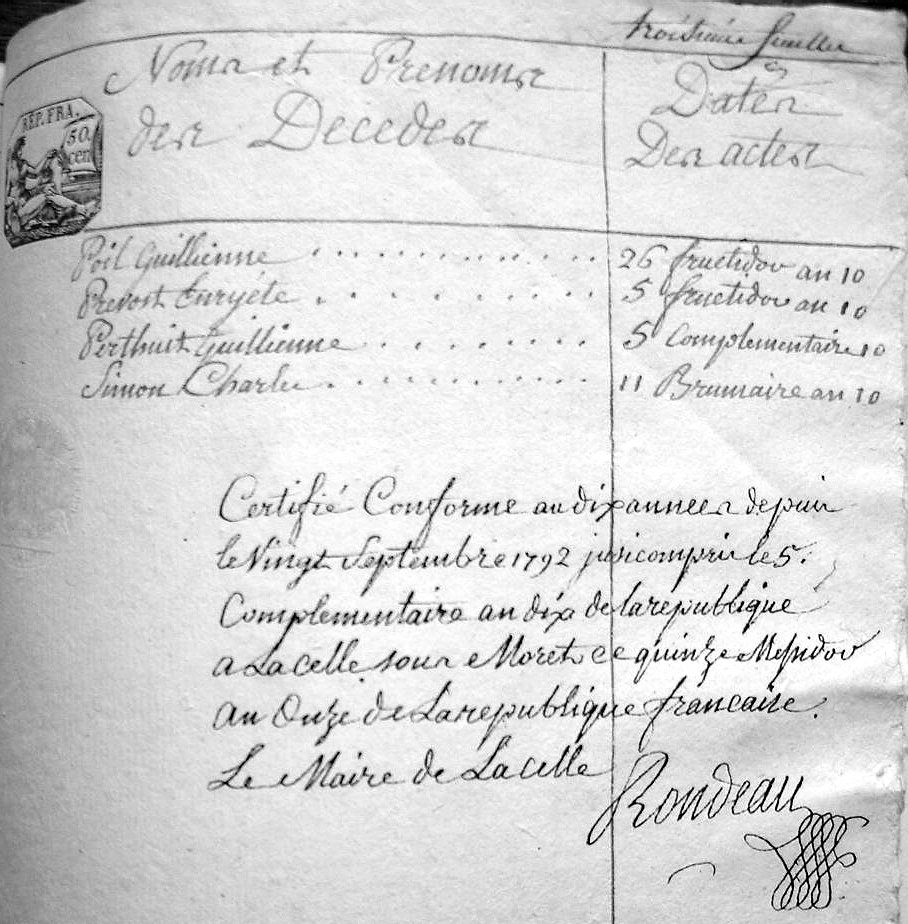 troisieme feuillet
Noms et Prenoms
des Decedes
Dates
Des actes
REP. FRA.
50
cen
Poil Guillienne . . . . . . . . . . . . 26 fructidor an 10
Prevost . . . . . . . . . 5 fructidor an 10
Perthuit Guillienne . . . . . . . . 5 complementaire 10
Simon Charles . . . . . . . . . . . . 11 Brumaire an 10
Certifié Conforme au dix annees depuis
le Vingt Septembre 1792 jusicompris le 5.
Complementaire an dix de la republique
a Lacelle sous Moret ce quinze Messidor
an Onze de Larepublique francaise.
Le Maire de Lacelle
Rondeau